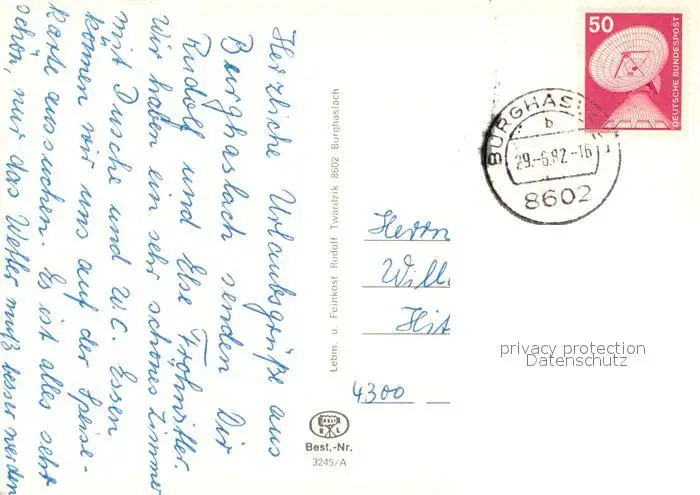 Herzliche Urlaubsgrüße aus
Burghaslach senden Dir
Rudolf und Else
Wir haben ein sehr schönes Zimmer
mit Dusche und W.C. Essen
können wir uns auf der Speise-
karte aussuchen. Es ist alles sehr
schön, nur das Wetter muß besser werden
Lebm. u. Feinkost Rudolf Twardzik 8602 Burghaslach
50
DEUTSCHE BUNDESPOST
b
29.-6.82.-16
8602
Herrn
Will
Hit
4300
privacy protection
Datenschutz
Best.-Nr.
3245/A